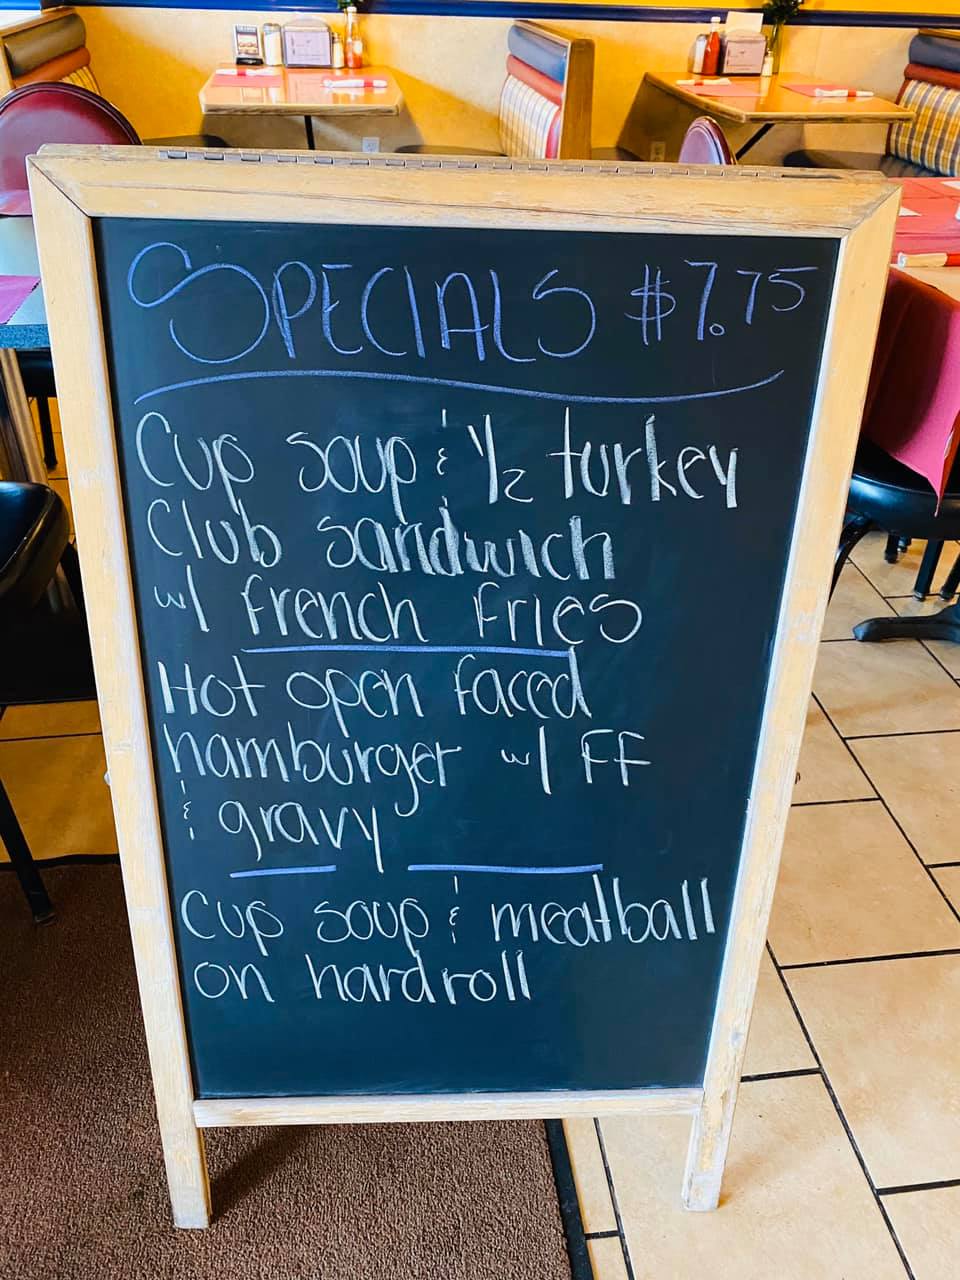 SPECIALS $7.75
Cup soup & 1/2 turkey
Club sandwich
w/ french fries
Hot open faced
hamburger w/ FF
& gravy
Cup soup & meatball
on hardroll